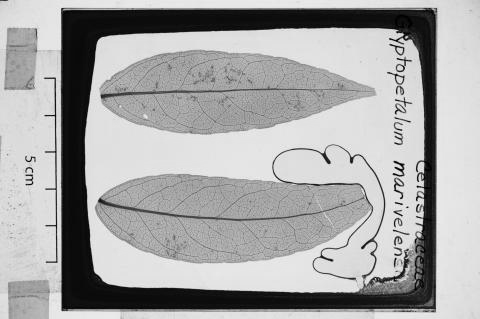 Celastraceae
Glyptopetalum marivelens
5 cm